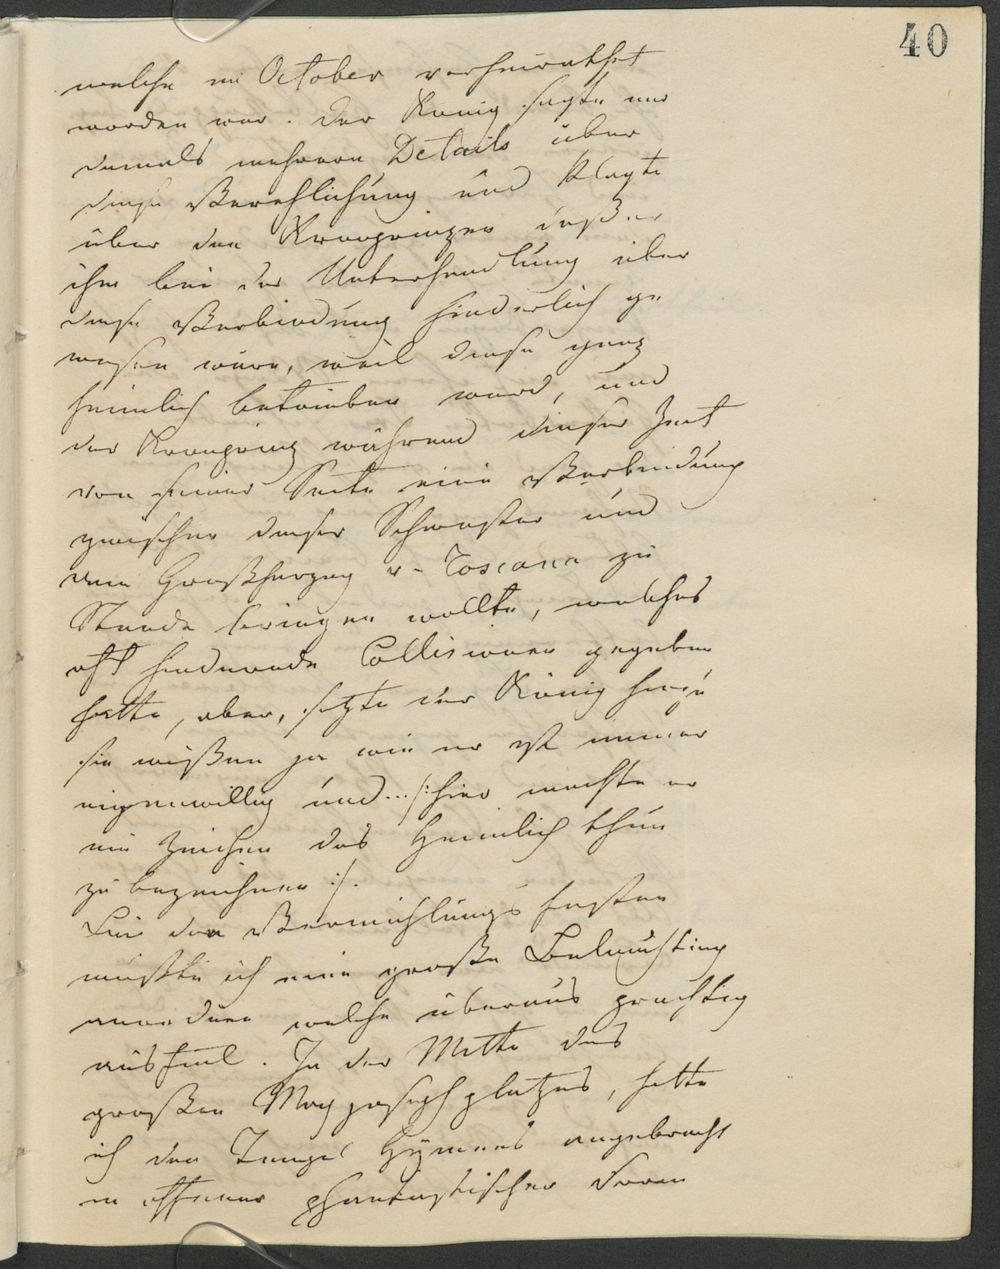 40
welche im October verheirathet
worden war. Der König sagte mir
damals mehrere Details über
diese Verehlichung und klagte
über den Kronprinzen daß er
ihm bei der Unterhandlung über
diese Verbindung hinderlich ge
wesen wäre, weil diese ganz
heimlich betrieben ward, und
der Kronprinz während dieser Zeit
von seiner Seite eine Verbindung
zwischen dieser Schwester und
dem Großherzog v. Toscana zu
Stande bringen wollte, welches
oft hindernde Collisionen gegeben
hatte, aber, setzte der König hinzu
sie wißen ja wie er ist immer
eigenwillig und... /: hier machte er
ein Zeichen das Heimlich thun
zu bezeichnen :/.
Bei den Vermählungs festen
mußte ich eine große Beleuchtung
anordnen welche überaus prachtig
ausfiel. In der Mitte des
großen Max joseph platzes, hatte
ich den Tempel Hymens angebracht
in offener phantastischer Form